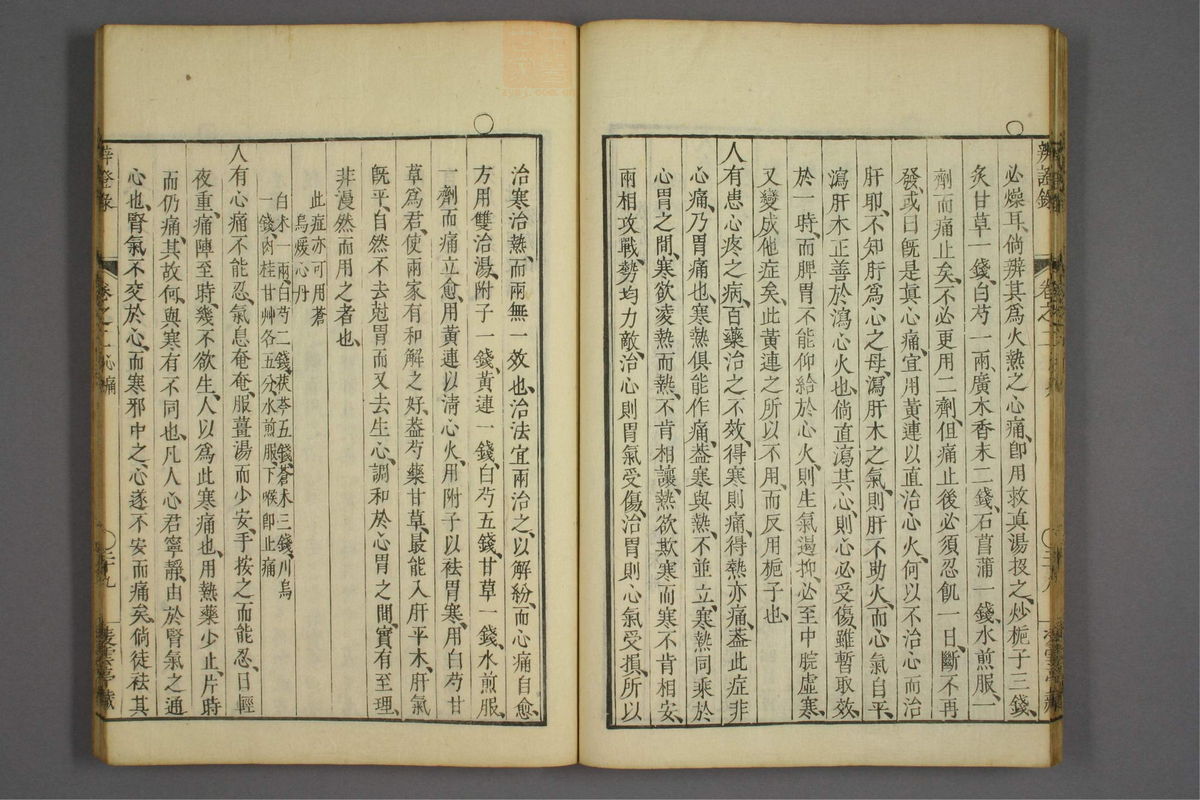 辨證錄
必燥耳、倘辨其爲火熱之心痛、卽用救真湯投之、炒梔子三錢、
炙甘草一錢、白芍一兩、廣木香末二錢、石菖蒲一錢、水煎服、一
劑而痛止矣、不必更用二劑、但痛止後必須忍飢一日、斷不再
發、或曰旣是真心痛、宜用黃連以直治心火、何以不治心而治
肝耶、不知肝爲心之母、瀉肝木之氣、則肝不助火、而心氣自平、
瀉肝木正善於瀉心火也、倘直瀉其心、則心必受傷、雖暫取效
於一時、而脾胃不能仰給於心火、則生氣遏抑、必至中脘虛寒、
又變成他症矣、此黃連之所以不用、而反用梔子也、
人有患心疼之病、百藥治之不效、得寒則痛、得熱亦痛、葢此症非
心痛、乃胃痛也、寒熱俱能作痛、葢寒與熱、不並立、寒熱同乘於
心胃之間、寒欲凌熱而熱、不肯相讓、熱欲欺寒而寒不肯相安、
兩相攻戰、勢均力敵、治心則胃氣受傷、治胃則心氣受損、所以
治寒治熱、而兩無一效也、治法宜兩治之、以解紛、而心痛自愈、
方用雙治湯、附子一錢、黃連一錢、白芍五錢、甘草一錢、水煎服、
一劑而痛立愈、用黃連以清心火、用附子以祛胃寒、用白芍甘
草爲君、使兩家有和解之好、葢芍藥甘草、最能入肝平木、肝氣
旣平、自然不去尅胃而又去生心、調和於心胃之間、實有至理、
非漫然而用之者也、
此症亦可用蒼
烏煖心丹
白朮一兩、白芍二錢、茯苓五錢、蒼朮三錢、川烏
一錢、肉桂甘艸各五分、水煎服、下喉卽止痛
人有心痛不能忍、氣息奄奄、服薑湯而少安、手按之而能忍、日輕
夜重、痛陣至時、幾不欲生、人以爲此寒痛也、用熱藥少止、片時
而仍痛、其故何、與寒有不同也、凡人心君寧靜、由於腎氣之通
心也、腎氣不交於心、而寒邪中之、心遂不安而痛矣、倘徒祛其
卷之二 心痛